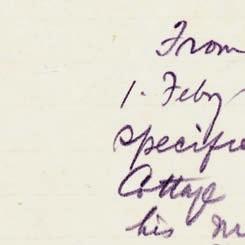 From
1. Feby
specifie
Cottage
his m